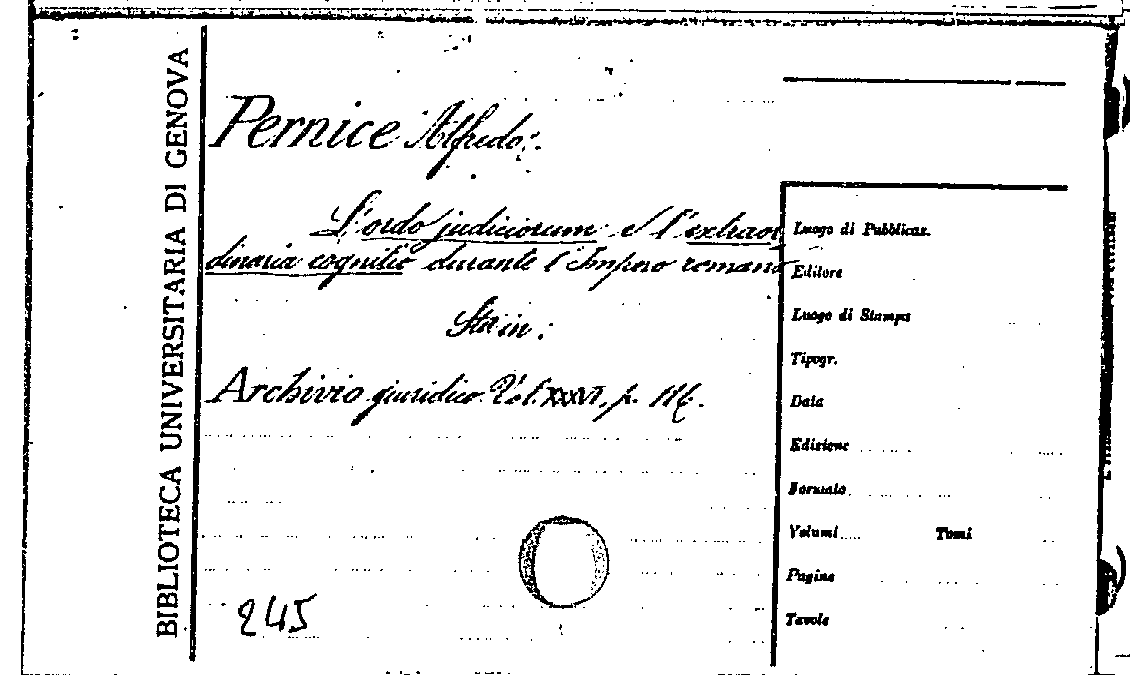 BIBLIOTECA UNIVERSITARIA DI GENOVA
Pernice Alfredo:
L'ordo judiciorum e l'extraor
dinaria cognitio durante l'Impero romano
Sta in:
Archivio giuridico Vol. XXXVI, p. 116.
245
Luogo di Pubblicaz.
Editore
Luogo di Stampa
Tipogr.
Data
Edizione
Formato
Volumi Tomi
Pagine
Tavole